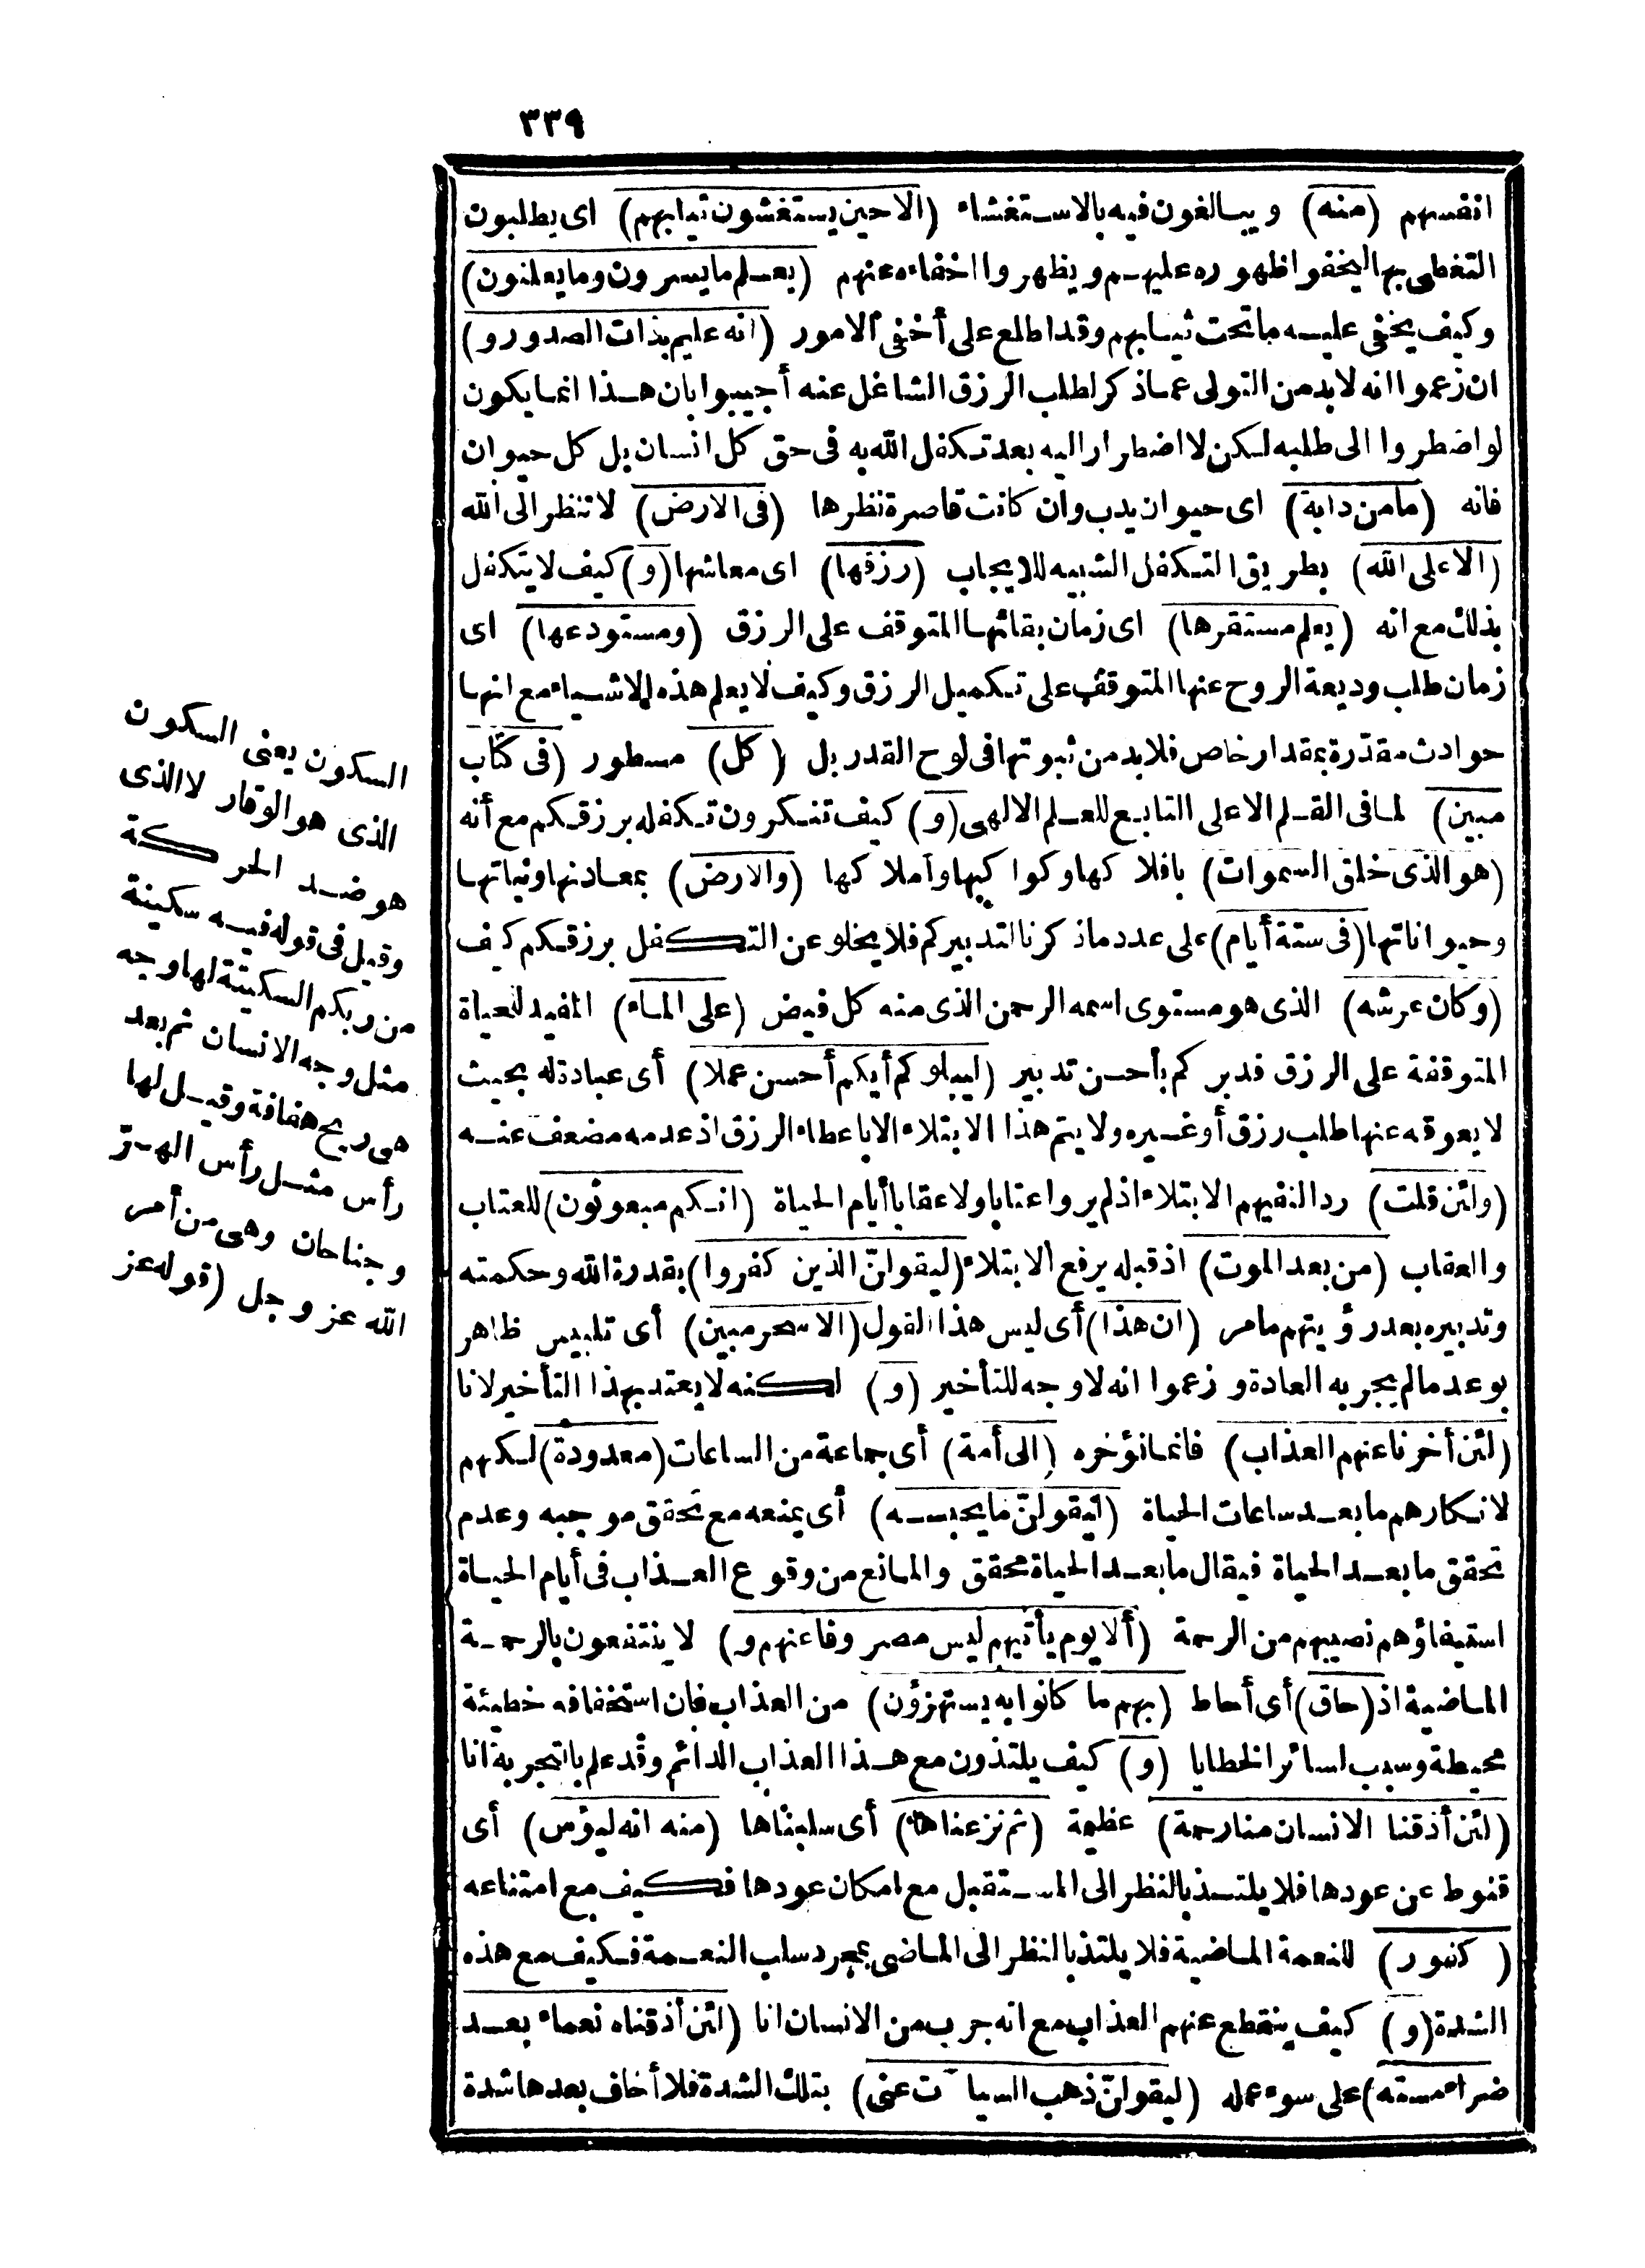 ٣٣٩
انفسهم (منه) ويبالغون فيه بالاستغشاء (الاحين يستغشون ثيابهم) اى يطلبون
التغطى بها ليخفوا ظهوره عليهم ويظهروا اخفاءه عنهم (يعلم ما يسرون وما يعلنون)
وكيف يخفى عليه ما تحت ثيابهم وقد اطلع على أخفى الامور (انه عليم بذات الصدور و)
ان زعموا انه لا بد من التولى عما ذكر لطلب الرزق الشاغل عنه أجيبوا بان هذا انما يكون
لو اضطروا الى طلبه لكن لا اضطرار اليه بعد تكفل الله به فى حق كل انسان بل كل حيوان
فانه (ما من دابة) اى حيوان يدب وان كانت قاصرة نظرها (فى الارض) لا تنظر الى الله
(الا على الله) بطريق التكفل الشبيه للايجاب (رزقها) اى معاشها (و) كيف لا يتكفل
بذلك مع انه (يعلم مستقرها) اى زمان بقائها المتوقف على الرزق (ومستودعها) اى
زمان طلب وديعة الروح عنها المتوقف على تكميل الرزق وكيف لا يعلم هذه الاشياء مع انها
حوادث مقدّرة بمقدار خاص فلا بد من ثبوتها فى لوح القدر بل (كل) مسطور (فى كتاب
مبين) لما فى القلم الاعلى التابع للعلم الالهى (و) كيف تنكرون تكفله برزقكم مع أنه
(هو الذى خلق السموات) بافلاكها وكواكبها وأملاكها (والارض) بمعادنها ونباتها
وحيواناتها (فى ستة أيام) على عدد ما ذكرنا لتدبيركم فلا يخلو عن التكفل برزقكم كيف
(وكان عرشه) الذى هو مستوى اسمه الرحمن الذى منه كل فيض (على الماء) المفيد للحياة
المتوقفة على الرزق فدبركم بأحسن تدبير (ليبلوكم أيكم أحسن عملا) أى عبادة له بحيث
لا يعوقه عنها طلب رزق أو غيره ولا يتم هذا الابتلاء الا باعطاء الرزق اذ عدمه مضعف عنه
(ولئن قلت) رد النفيهم الابتلاء اذ لم يروا عتابا ولا عقابا أيام الحياة (انكم مبعوثون) للعتاب
والعقاب (من بعد الموت) اذ قبله يرفع الابتلاء (ليقولنّ الذين كفروا) بقدرة الله وحكمته
وتدبيره بعد رؤيتهم ما مر (ان هذا) أى ليس هذا القول (الا سحر مبين) أى تلبيس ظاهر
بوعد ما لم يجر به العادة وزعموا انه لا وجه للتأخير (و) لكنه لا يعتد بهذا التأخير لانا
(لئن أخرنا عنهم العذاب) فانما نؤخره (الى أمة) أى جماعة من الساعات (معدودة) لكنهم
لانكارهم ما بعد ساعات الحياة (ليقولنّ ما يحبسه) أى يمنعه مع تحقق موجبه وعدم
تحقق ما بعد الحياة فيقال ما بعد الحياة محقق والمانع من وقوع العذاب فى أيام الحياة
استيفاؤهم نصيبهم من الرحمة (ألا يوم يأتيهم ليس مصروفا عنهم و) لا ينتفعون بالرحمة
الماضية اذ (حاق) أى أحاط (بهم ما كانوا به يستهزؤن) من العذاب فان استخفافه خطيئة
محيطة وسبب لسائر الخطايا (و) كيف يلتذون مع هذا العذاب الدائم وقد علم بالتجربة انا
(لئن أذقنا الانسان منا رحمة) عظيمة (ثم نزعناها) أى سلبناها (منه انه ليؤس) أى
قنوط عن عودها فلا يلتذ بالنظر الى المستقبل مع امكان عودها فكيف مع امتناعه
(كفور) للنعمة الماضية فلا يلتذ بالنظر الى الماضى بمجرد سلب النعمة فكيف مع هذه
الشدة (و) كيف ينقطع عنهم العذاب مع انه جرب من الانسان انا (لئن أذقناه نعماء بعد
ضراء مسته) على سوء عمله (ليقولنّ ذهب السيآت عنى) بتلك الشدة فلا أخاف بعدها شدة
السكون يعنى السكون
الذى هو الوقار لا الذى
هو ضد الحركة
وقيل فى قوله فيه سكينة
من ربكم السكينة لها وجه
مثل وجه الانسان ثم بعد
هى ريح هفافة وقيل لها
رأس مثل رأس الهرّ
وجناحان وهى من أمر
الله عز وجل (قوله عز